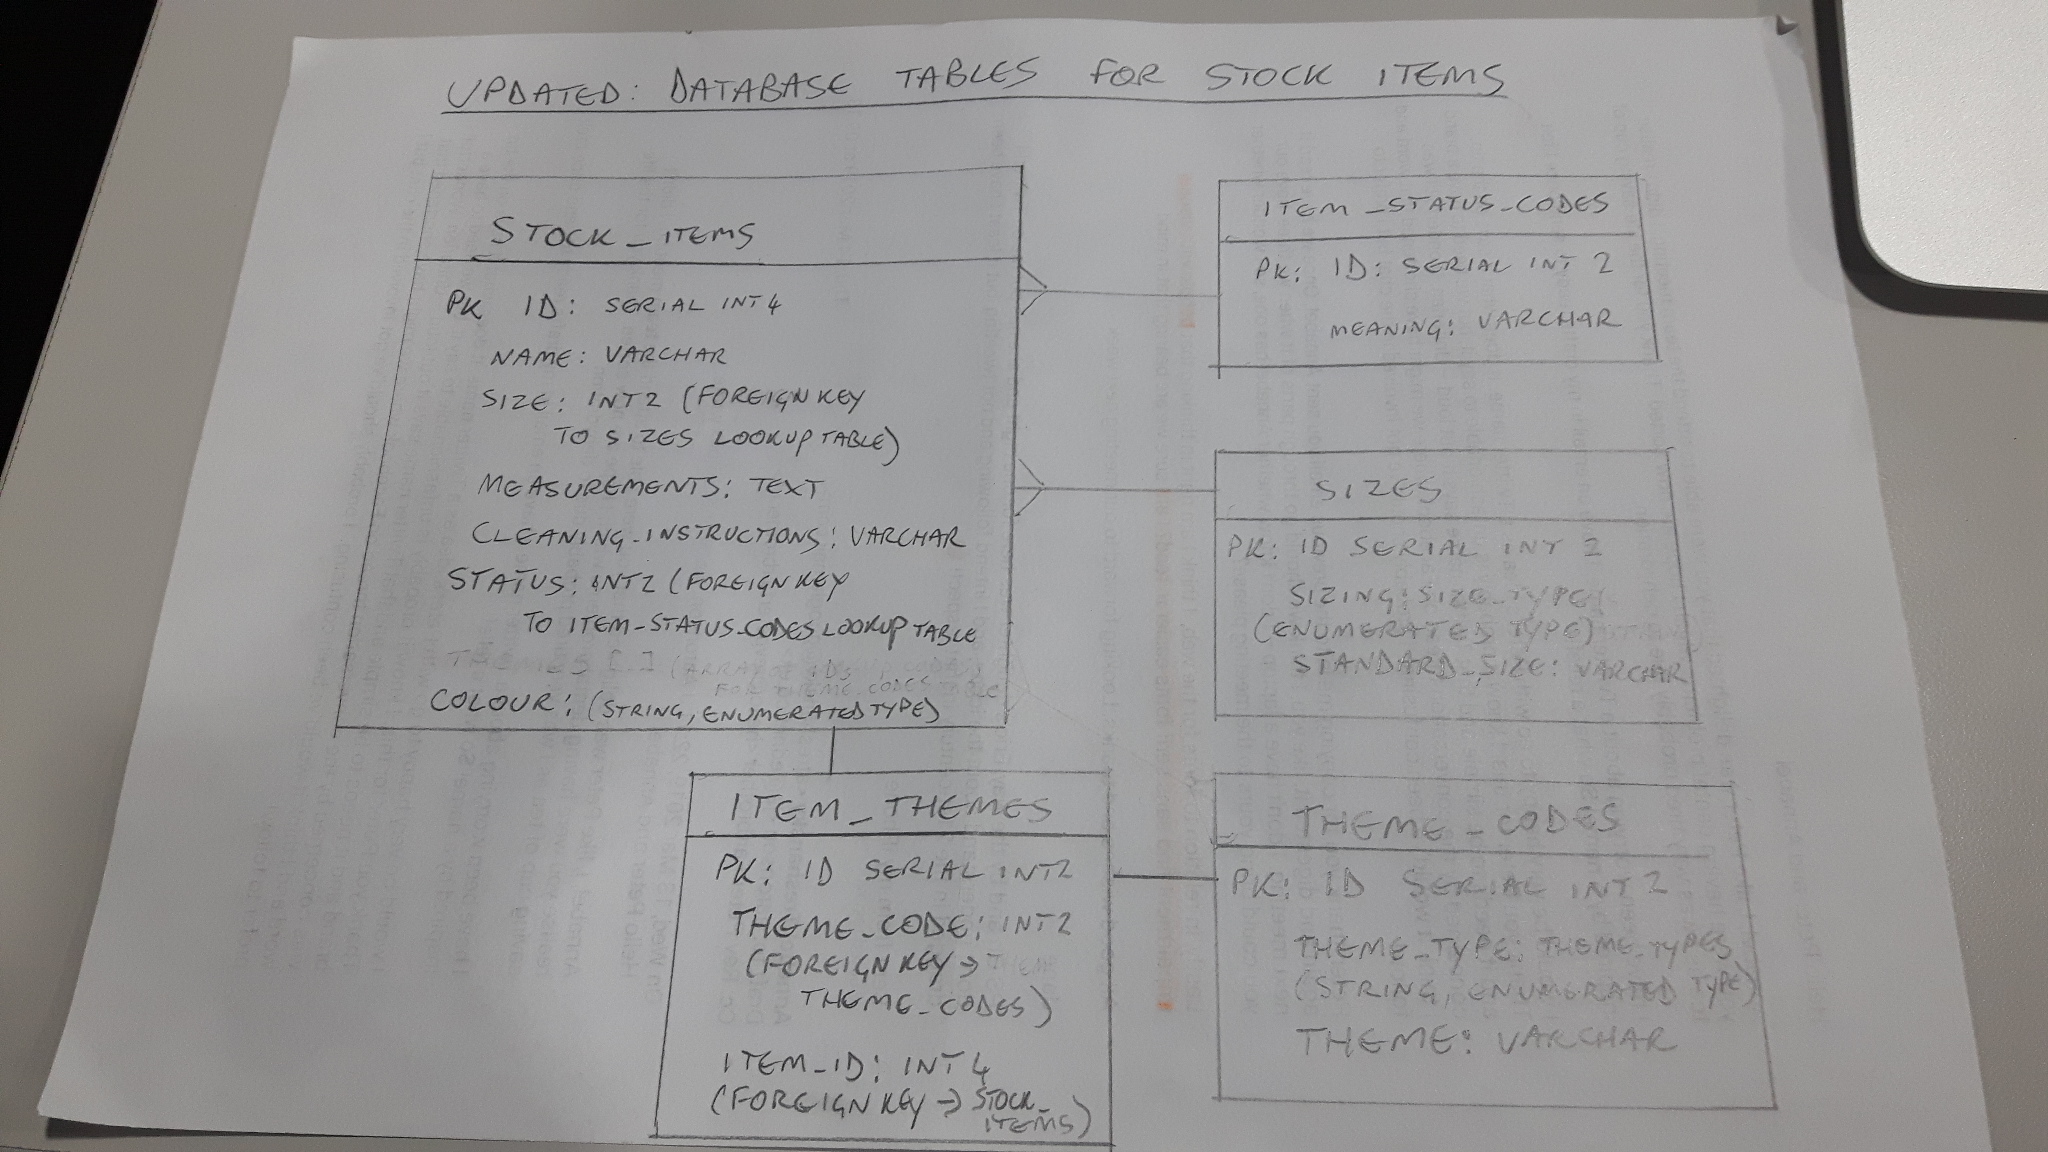 UPDATED: DATABASE TABLES FOR STOCK ITEMS
STOCK_ITEMS
PK ID: SERIAL INT4
NAME: VARCHAR
SIZE: INT2 (FOREIGN KEY
TO SIZES LOOKUP TABLE)
MEASUREMENTS: TEXT
CLEANING_INSTRUCTIONS: VARCHAR
STATUS: INT2 (FOREIGN KEY
TO ITEM_STATUS_CODES LOOKUP TABLE
COLOUR: (STRING, ENUMERATED TYPE)
ITEM_STATUS_CODES
PK: ID: SERIAL INT 2
MEANING: VARCHAR
SIZES
PK: ID SERIAL INT 2
SIZING: SIZE_TYPE
(ENUMERATED TYPE)
STANDARD_SIZE: VARCHAR
ITEM_THEMES
PK: ID SERIAL INT2
THEME_CODE: INT2
(FOREIGN KEY →
THEME_CODES)
ITEM_ID: INT 4
(FOREIGN KEY → STOCK_
ITEMS)
THEME_CODES
PK: ID SERIAL INT 2
THEME_TYPE: THEME_TYPES
(STRING, ENUMERATED TYPE)
THEME: VARCHAR